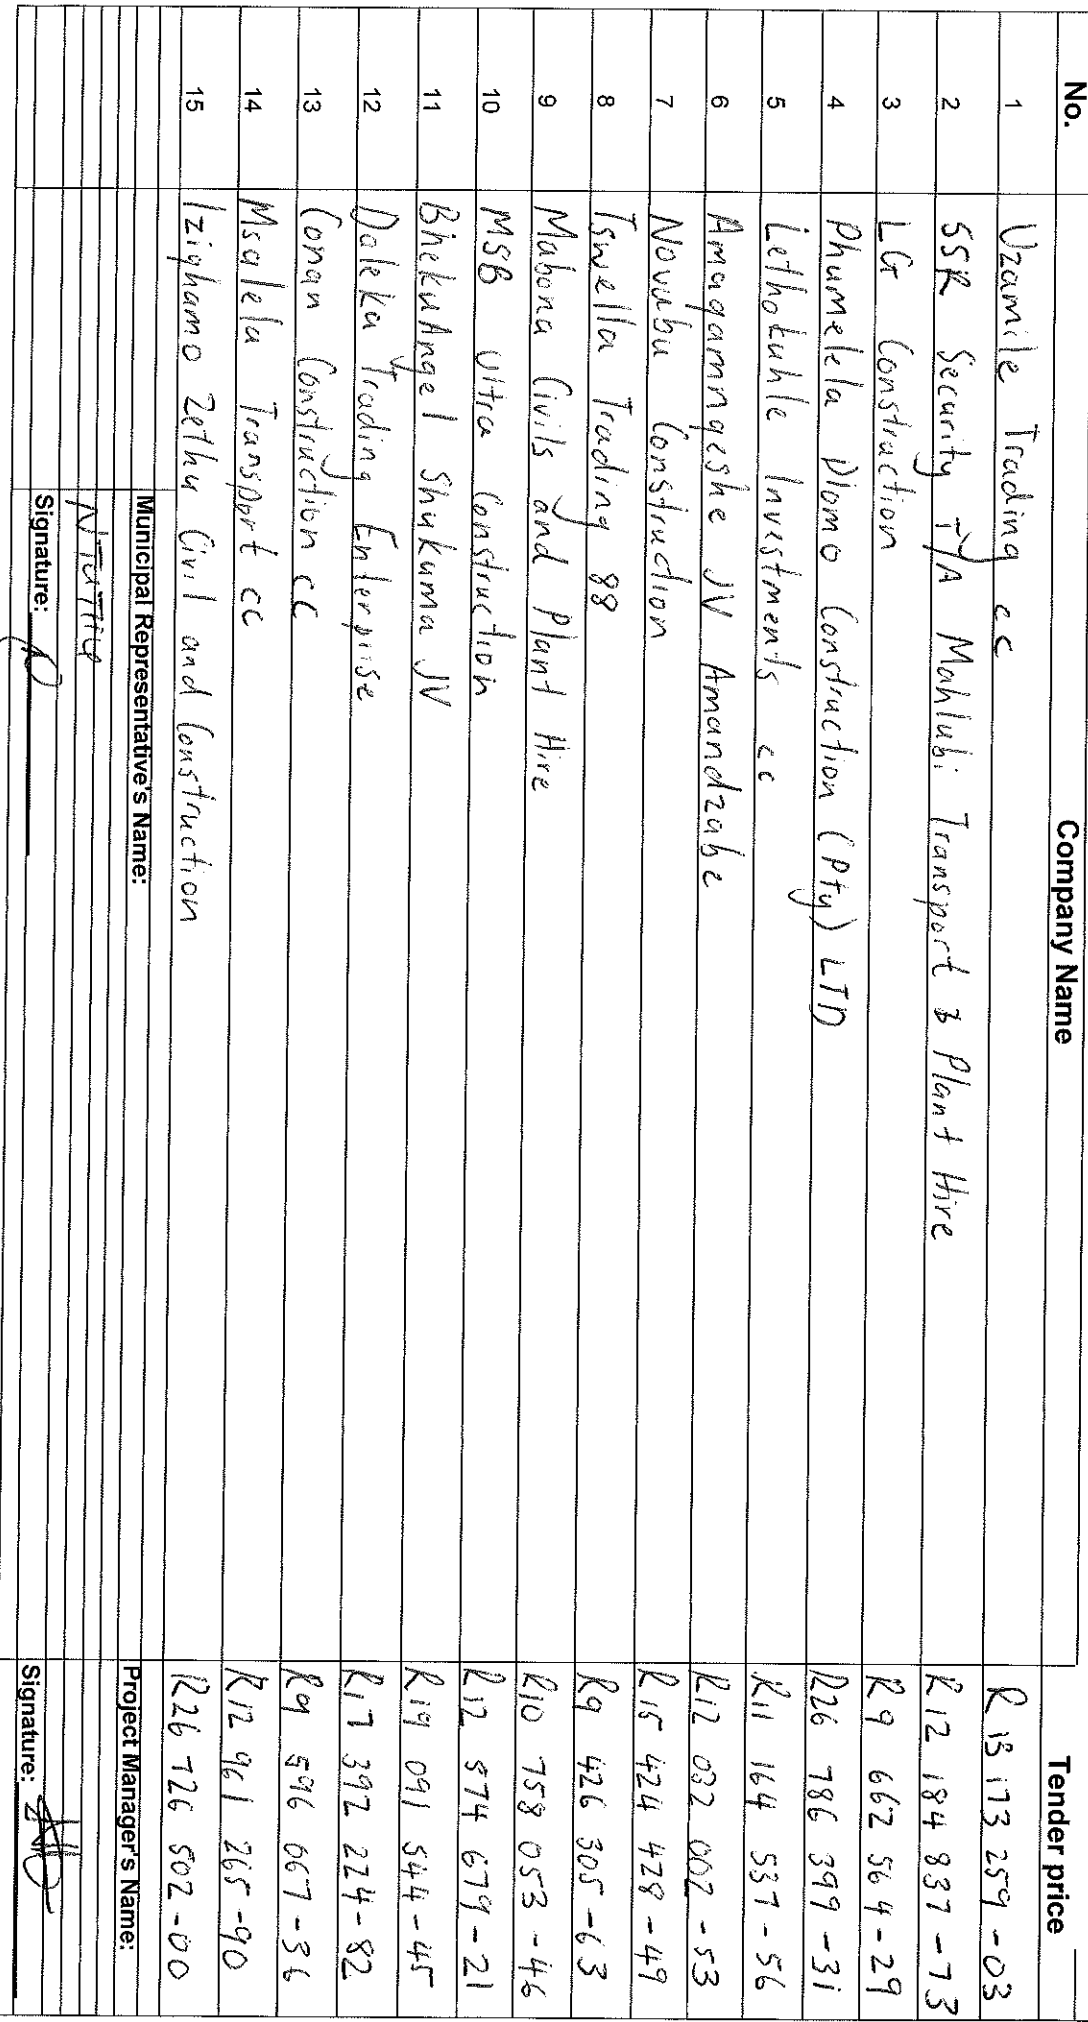 No. Company Name Tender price
1 Uzamile Trading cc R 13 173 259 -03
2 SSR Security T/A Mahlubi Transport & Plant Hire R12 184 837 -73
3 LG Construction R9 662 564 -29
4 Phumelela Dlomo Construction (Pty) LTD R26 786 399 -31
5 Lethokuhle Investments cc R11 164 537 -56
6 Amaqamngeshe JV Amandzabe R12 032 002 -53
7 Novubu Construction R15 424 428 -49
8 Tswella Trading 88 R9 426 305 -63
9 Mabona Civils and Plant Hire R10 758 053 -46
10 MSB Ultra Construction R12 574 679 -21
11 BhekuAngel Shukuma JV R19 091 544 -45
12 Daleka Trading Enterprise R17 392 224 -82
13 Conan Construction cc R9 596 067 -36
14 Msalela Transport cc R12 961 265 -90
15 Izighamo Zethu Civil and Construction R26 726 502 -00
Municipal Representative's Name: Project Manager's Name:
Signature: Signature: